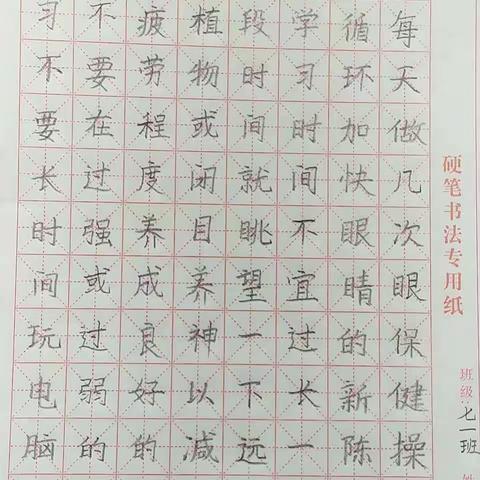 硬笔书法专用纸
班级 七一班
每天做几次眼保健操
循环加快眼睛的新陈
学习时间不宜过长一
段时间就眺望一下远
植物或闭目养神以减
疲劳程度养成良好的
不要在过强或过弱的
习不要长时间玩电脑